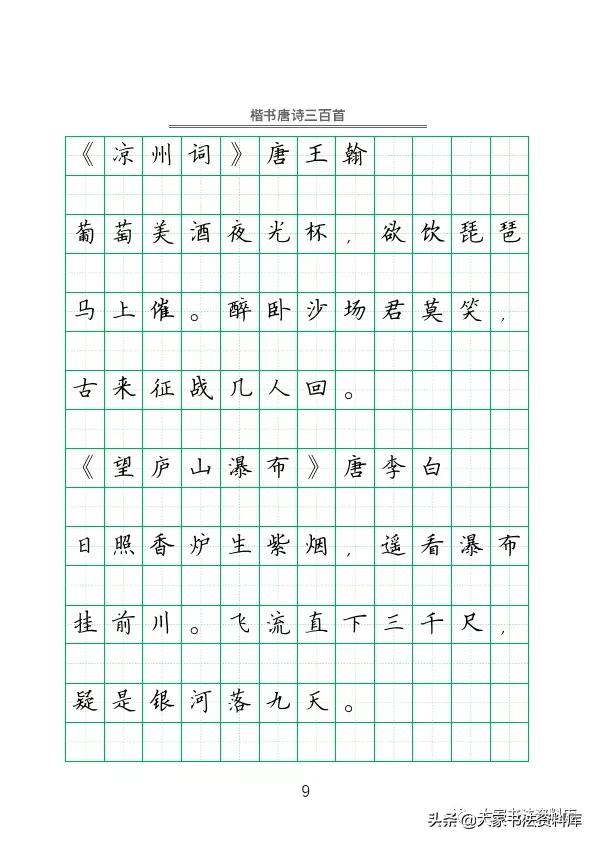 楷书唐诗三百首
《凉州词》唐王翰
葡萄美酒夜光杯，欲饮琵琶
马上催。醉卧沙场君莫笑，
古来征战几人回。
《望庐山瀑布》唐李白
日照香炉生紫烟，遥看瀑布
挂前川。飞流直下三千尺，
疑是银河落九天。
9
大家书法资料库
头条@大家书法资料库